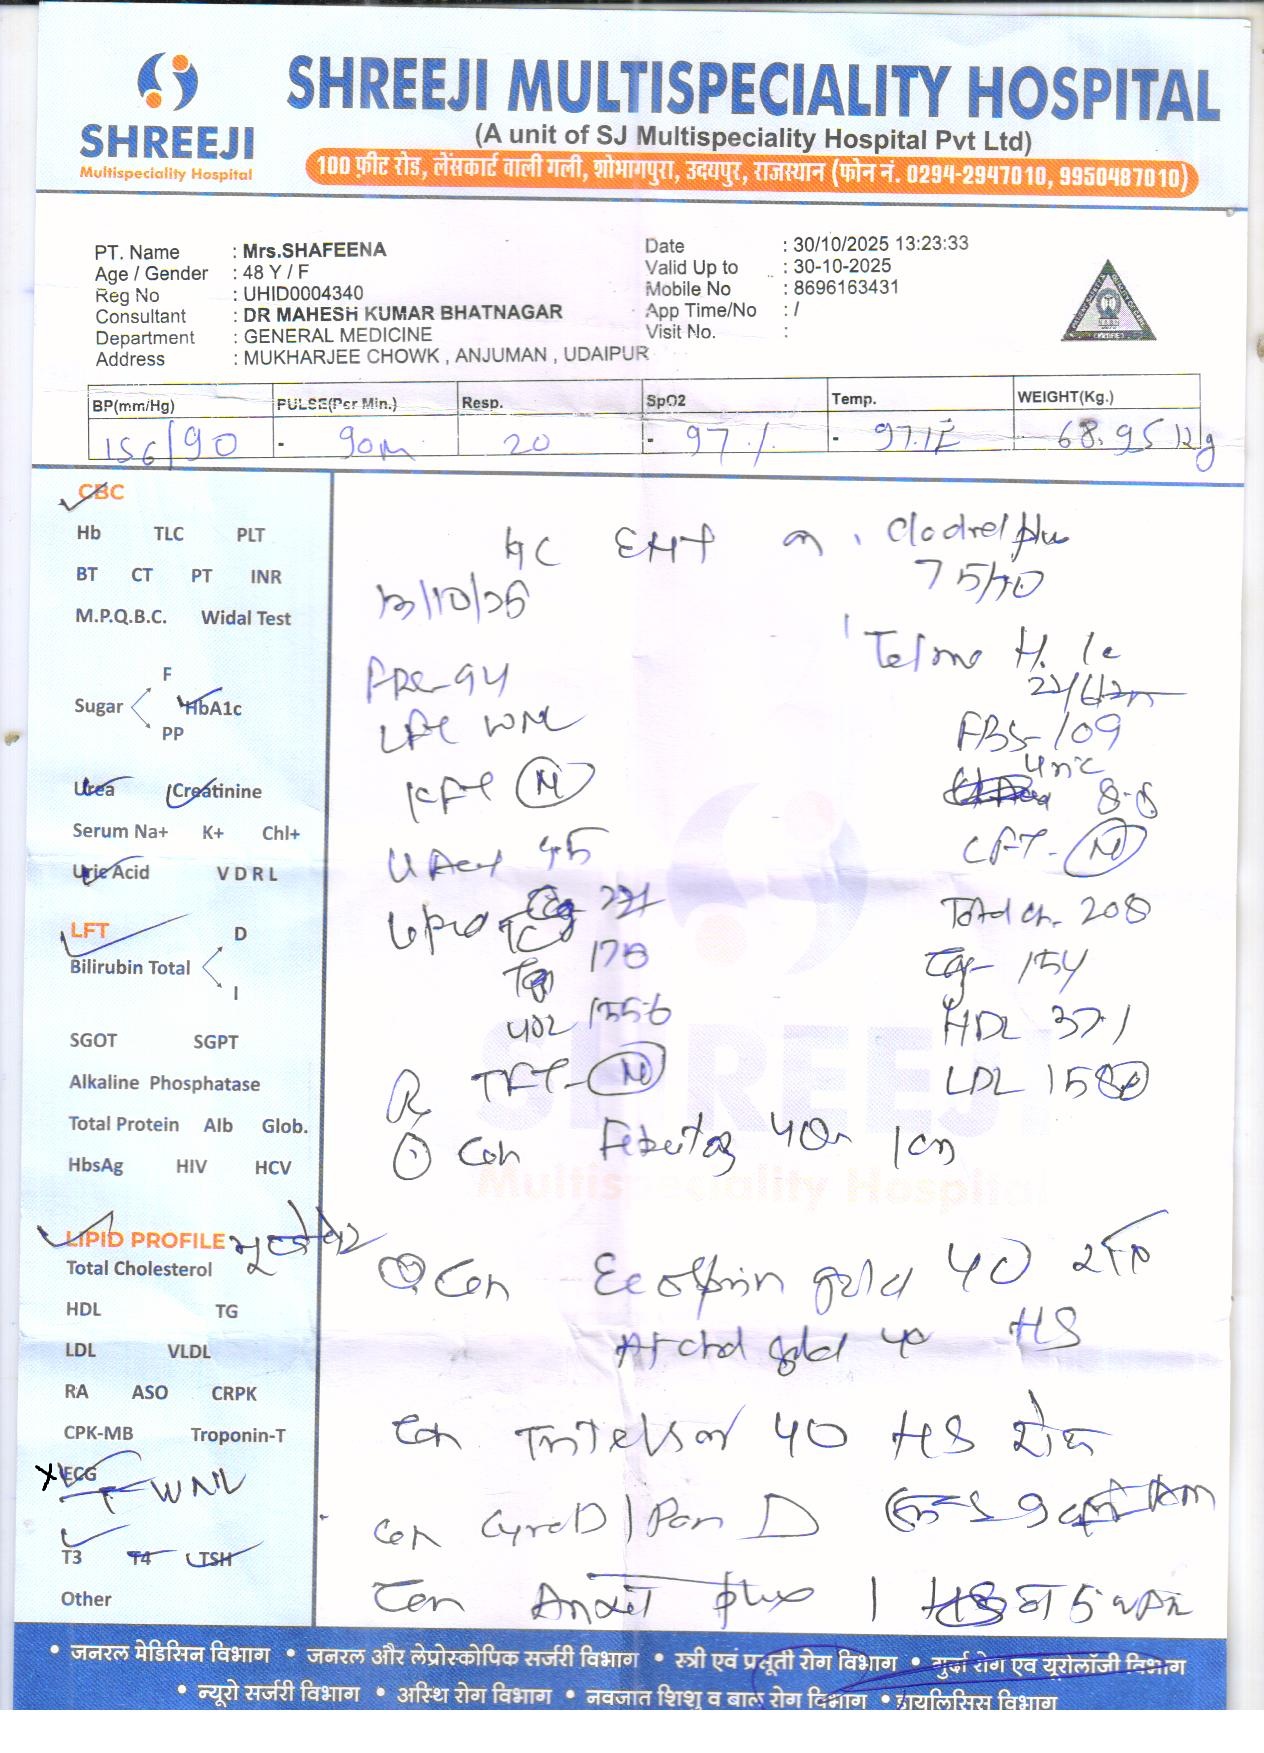 SHREEJI
Multispeciality Hospital
SHREEJI MULTISPECIALITY HOSPITAL
(A unit of SJ Multispeciality Hospital Pvt Ltd)
100 फ़ीट रोड, लेंसकार्ट वाली गली, शोभागपुरा, उदयपुर, राजस्थान (फोन नं. 0294-2947010, 9950487010)
PT. Name : Mrs.SHAFEENA
Age / Gender : 48 Y / F
Reg No : UHID0004340
Consultant : DR MAHESH KUMAR BHATNAGAR
Department : GENERAL MEDICINE
Address : MUKHARJEE CHOWK , ANJUMAN , UDAIPUR
Date : 30/10/2025 13:23:33
Valid Up to : 30-10-2025
Mobile No : 8696163431
App Time/No : /
Visit No. :
BP(mm/Hg) PULSE(Per Min.) Resp. SpO2 Temp. WEIGHT(Kg.)
156/90 - 90m 20 - 97% - 97.1F 68.95 Kg
CBC
Hb TLC PLT
BT CT PT INR
M.P.Q.B.C. Widal Test
F
Sugar HbA1c
PP
Urea Creatinine
Serum Na+ K+ Chl+
Uric Acid V D R L
LFT
D
Bilirubin Total
I
SGOT SGPT
Alkaline Phosphatase
Total Protein Alb Glob.
HbsAg HIV HCV
LIPID PROFILE
Total Cholesterol
HDL TG
LDL VLDL
RA ASO CRPK
CPK-MB Troponin-T
ECG WNL
T3 T4 TSH
Other
Clodrel plu
75/10
13/10/25
Telmo H.
LFT WNL
FBS-109
KFT N
8.8
U Acid 4.5
N
221
Total ch. 208
TC
178
154
HDL 37.1
TFT- N
LDL 158
R
① 40
② Ecosprin gold 40
gold 40 HS
40 HS
Cyra D / Pan D
Anxit plus 1
SHREEJI
Multispeciality Hospital
• जनरल मेडिसिन विभाग • जनरल और लेप्रोस्कोपिक सर्जरी विभाग • स्त्री एवं प्रसूती रोग विभाग • गुर्दा रोग एवं यूरोलॉजी विभाग
• न्यूरो सर्जरी विभाग • अस्थि रोग विभाग • नवजात शिशु व बाल रोग विभाग • डायलिसिस विभाग